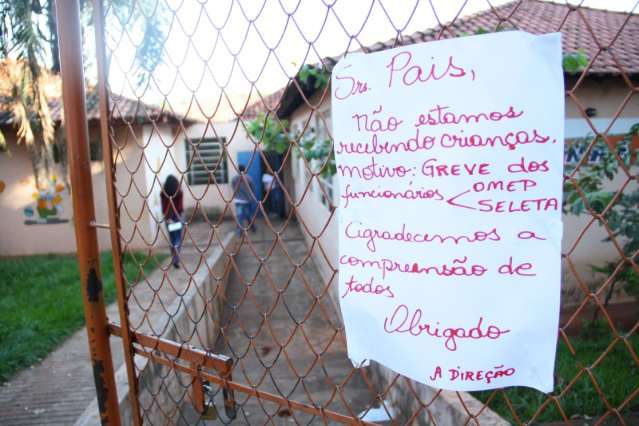 Srs. Pais,
Não estamos
recebendo crianças.
motivo: GREVE dos
funcionários < OMEP
SELETA
Agradecemos a
compreensão de
todos
Obrigado
A DIREÇÃO